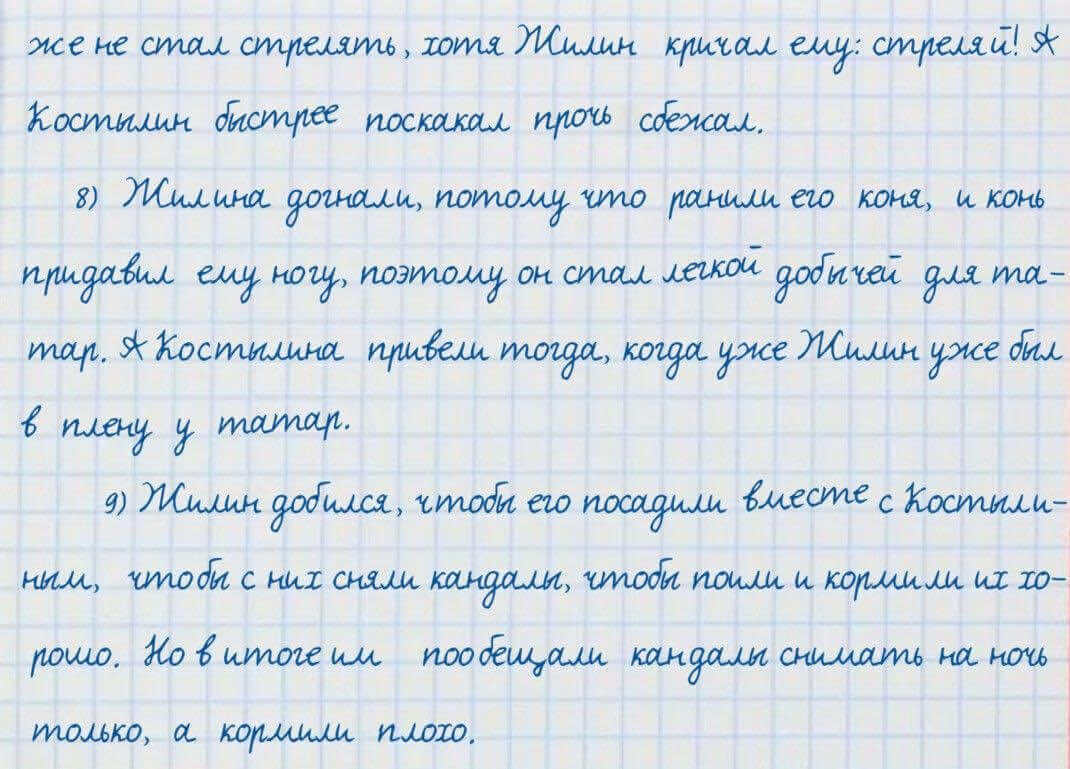 же не стал стрелять, хотя Жилин кричал ему: стреляй! А
Костылин быстрее поскакал прочь сбежал.
8) Жилина догнали, потому что ранили его коня, и конь
придавил ему ногу, поэтому он стал легкой добычей для та-
тар. А Костылина привели тогда, когда уже Жилин уже был
в плену у татар.
9) Жилин добился, чтобы его посадили вместе с Костыли-
ным, чтобы с них сняли кандалы, чтобы поили и кормили их хо-
рошо. Но в итоге им пообещали кандалы снимать на ночь
только, а кормили плохо.